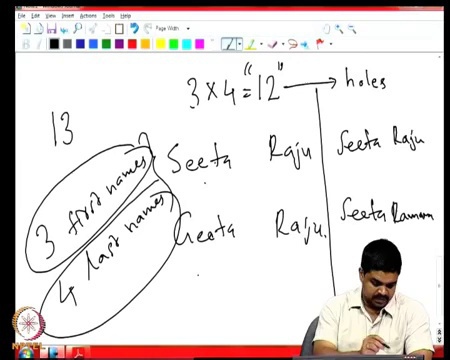 File Edit View Insert Actions Tools Help
Page Width
3 × 4 = "12" → holes
13
3 first names
4 last names
Seeta Raju
Seeta Raju
Geeta Raju.
Seeta Ramana